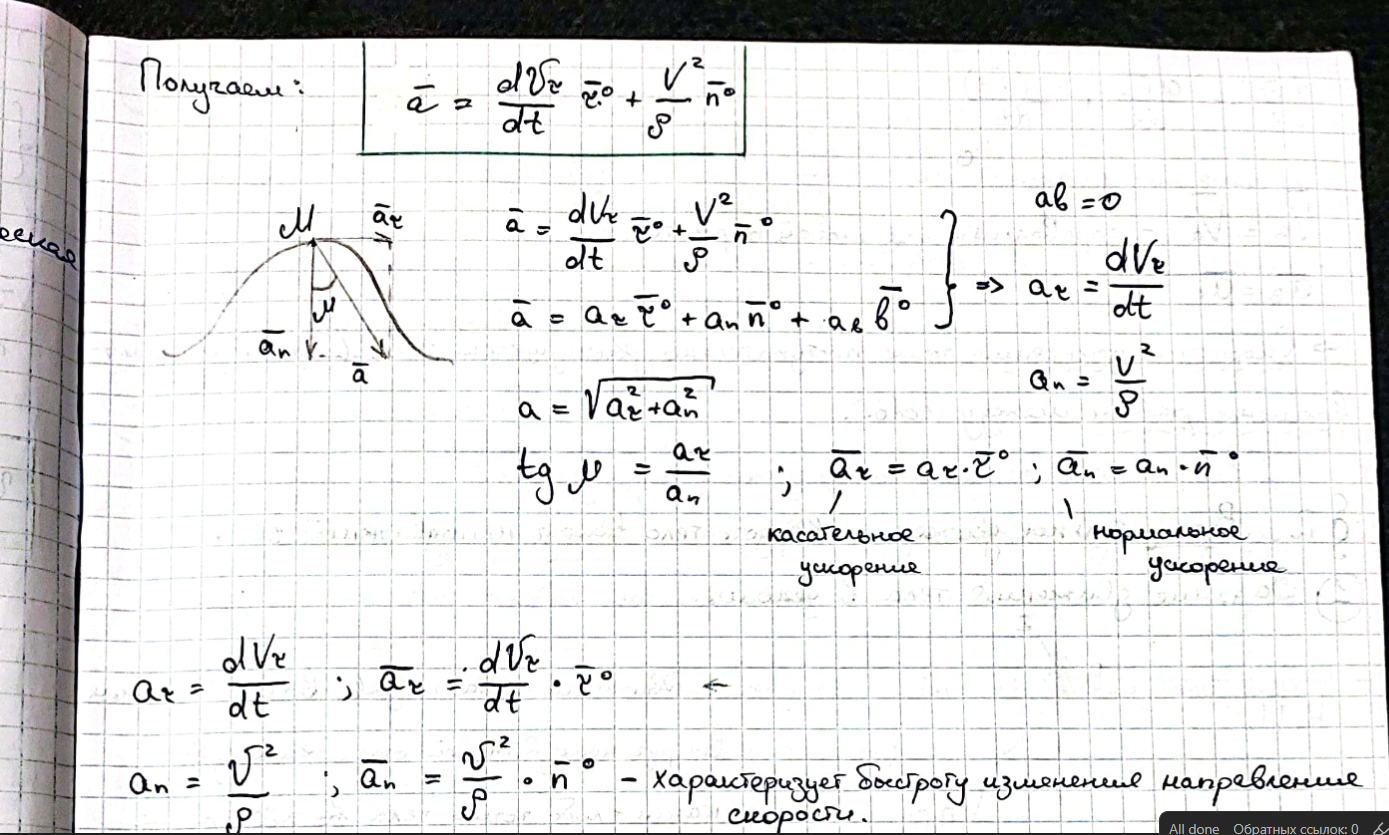 Получаем: ā = dVτ/dt τ̄° + V²/ρ n̄°
M āτ
μ
ān
ā
ā = dVτ/dt τ̄° + V²/ρ n̄°
ā = aτ τ̄° + an n̄° + aв в̄°
} => aв = 0
aτ = dVτ/dt
an = V²/ρ
a = √(aτ² + an²)
tg μ = aτ/an ; āτ = aτ·τ̄° ; ān = an·n̄°
касательное ускорение
нормальное ускорение
aτ = dVτ/dt ; āτ = dVτ/dt · τ̄° ←
an = V²/ρ ; ān = V²/ρ · n̄° – характеризует быстроту изменения направления
скорости.
All done Обратных ссылок: 0